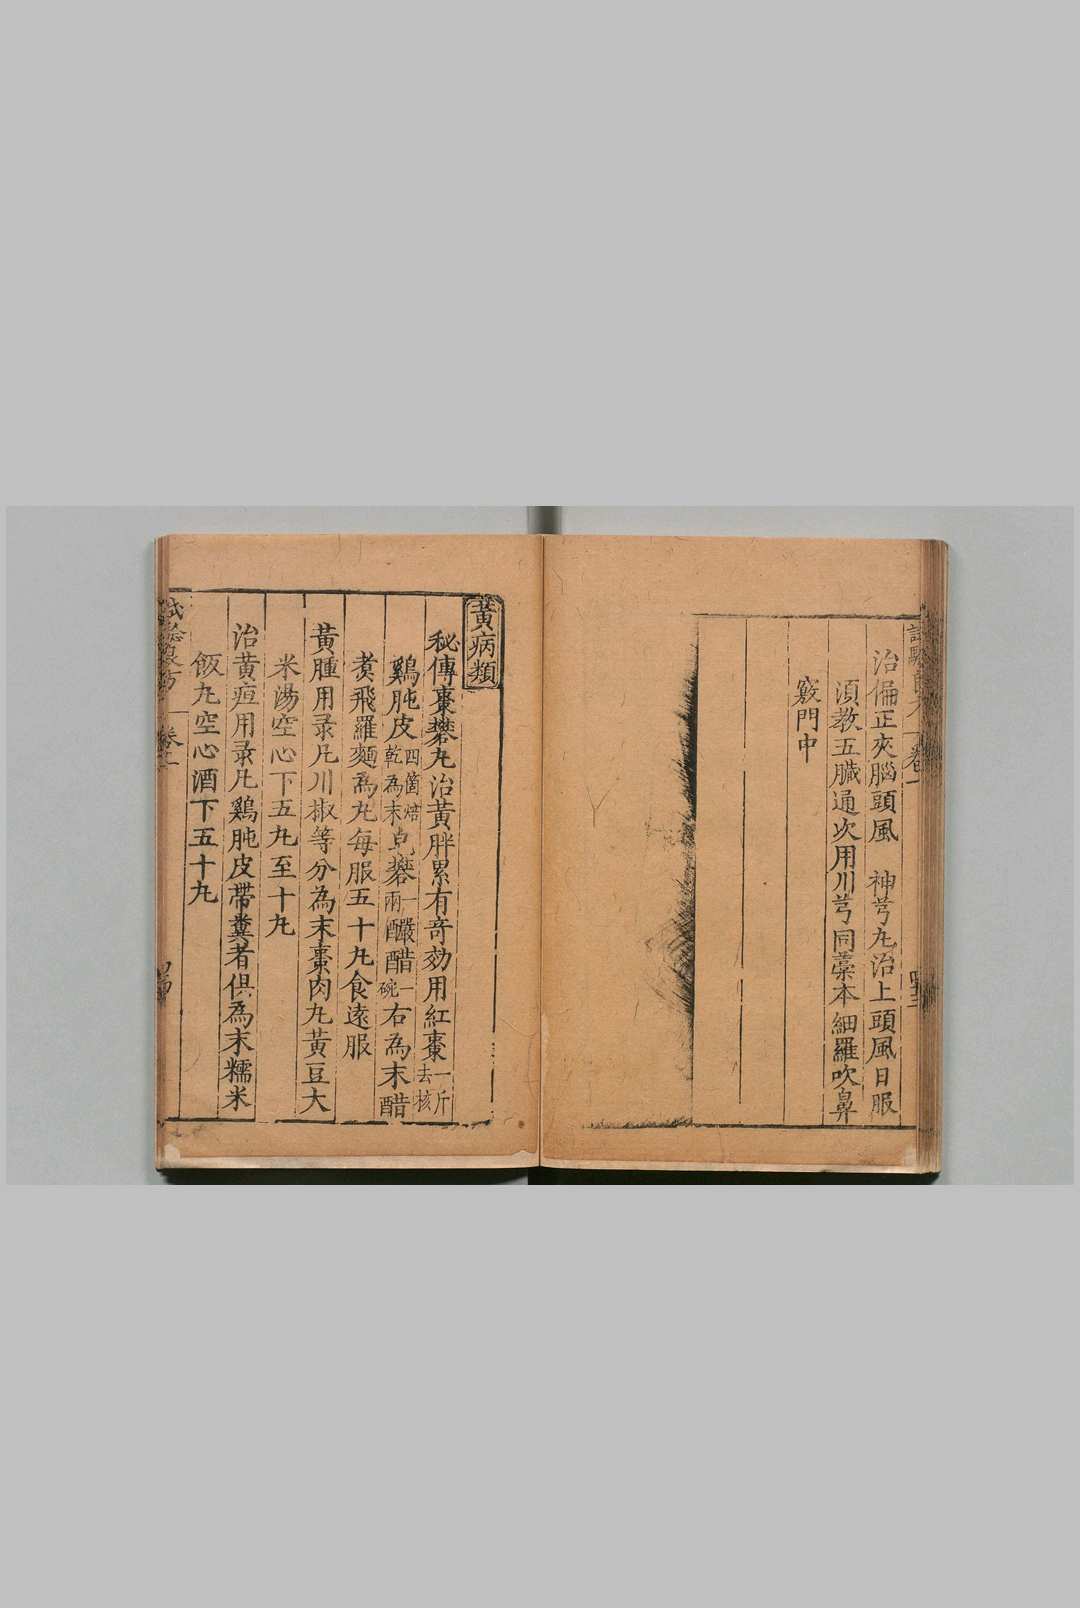 治偏正夾腦頭風　神芎丸治上頭風日服
湏教五臟通次用川芎同藁本細羅吹鼻
竅門中
黃病類
秘傳棗礬丸治黃胖累有奇効用紅棗一斤去核
鷄肫皮四箇焙乾為末皂礬一兩釅醋一碗右為末醋
煑飛羅麵為丸每服五十丸食遠服
黃腫用彔凡川椒等分為末棗肉丸黃豆大
米湯空心下五丸至十丸
治黃疸用彔凡鷄肫皮帶糞者俱為末糯米
飯丸空心酒下五十丸